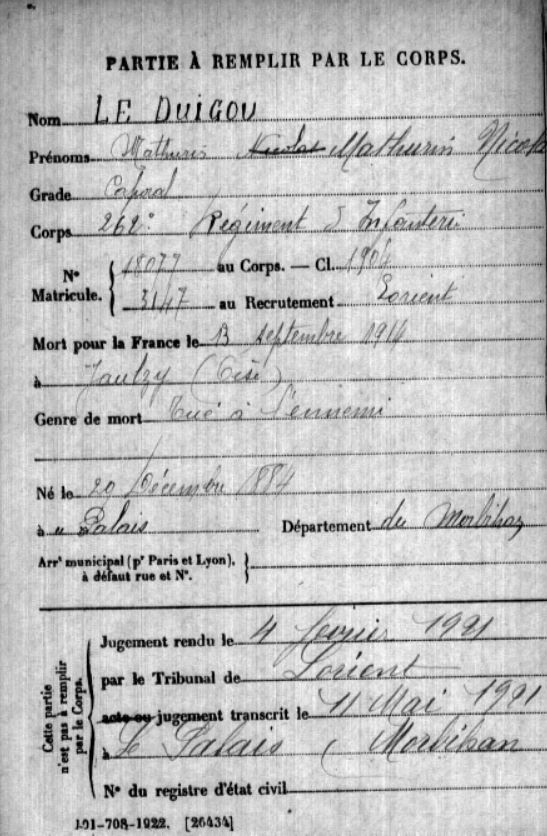 PARTIE À REMPLIR PAR LE CORPS.
Nom LE DUIGOU
Prénoms Mathurin Nicolas Mathurin Nicolas
Grade Caporal
Corps 262e Régiment d'Infanterie
N° Matricule. 18077 au Corps. — Cl. 1904
3147 au Recrutement Lorient
Mort pour la France le 13 septembre 1914
à Jaulzy (Oise)
Genre de mort Tué à l'ennemi
Né le 20 Décembre 1884
à " Palais Département du Morbihan
Arrt municipal (pr Paris et Lyon),
à défaut rue et N°.
Cette partie n'est pas à remplir par le Corps.
Jugement rendu le 4 février 1921
par le Tribunal de Lorient
acte ou jugement transcrit le 11 Mai 1921
à Le Palais (Morbihan
N° du registre d'état civil
101-708-1922. [26434]